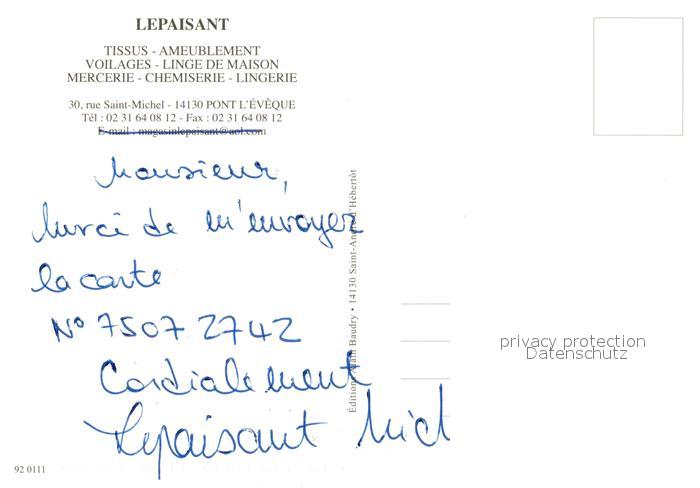 LEPAISANT
TISSUS - AMEUBLEMENT
VOILAGES - LINGE DE MAISON
MERCERIE - CHEMISERIE - LINGERIE
30, rue Saint-Michel - 14130 PONT L'ÉVÊQUE
Tél : 02 31 64 08 12 - Fax : 02 31 64 08 12
E-mail : magasinlepaisant@aol.com
Monsieur,
Merci de m'envoyer
la carte
N° 7507 2742
Cordialement
Lepaisant Mich
Édition Alain Baudry • 14130 Saint-André d'Hébertôt
privacy protection
Datenschutz
92 0111